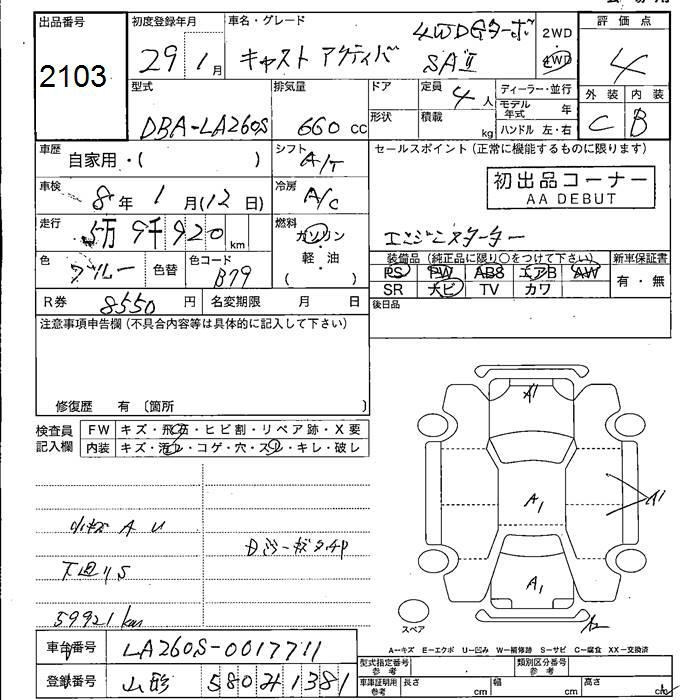 出品番号
2103
初度登録年月
29年1月
車名・グレード
キャスト アクティバ
4WD Gターボ
SAⅡ
2WD
4WD
評価点
4
外装 内装
C B
型式
DBA-LA260S
排気量
660 cc
ドア
形状
定員 4人
積載 kg
ディーラー・並行
モデル年式 年
ハンドル 左・右
車歴
自家用・( )
シフト
A/T
セールスポイント (正常に機能するものに限ります)
初出品コーナー
AA DEBUT
エンジンスターター
車検
8年 1月(12日)
冷房
A/C
走行
5万9千920km
燃料
ガソリン
軽・油
( )
色
ブルー
色替
色コード
B79
装備品 (純正品に限り○をつけて下さい)
PS PW ABS エアB AW
SR ナビ TV カワ
新車保証書
有・無
R券 8550円 名変期限 月 日
後日品
注意事項申告欄 (不具合内容等は具体的に記入して下さい)
修復歴 有 〔箇所
検査員記入欄
FW キズ・飛石・ヒビ割・リペア跡・X要
内装 キズ・汚レ・コゲ・穴・スレ・キレ・破レ
小キズ A U
下廻りS
59921km
A1
A1
A1
A1
A2
スペア
A-キズ E-エクボ U-凹み W-補修跡 S-サビ C-腐食 XX-交換済
車台番号 LA260S-0017711
登録番号 山形 580 1381
型式指定番号 参考
類別区分番号 参考
車庫証明用 参考 長さ cm 幅 cm 高さ cm